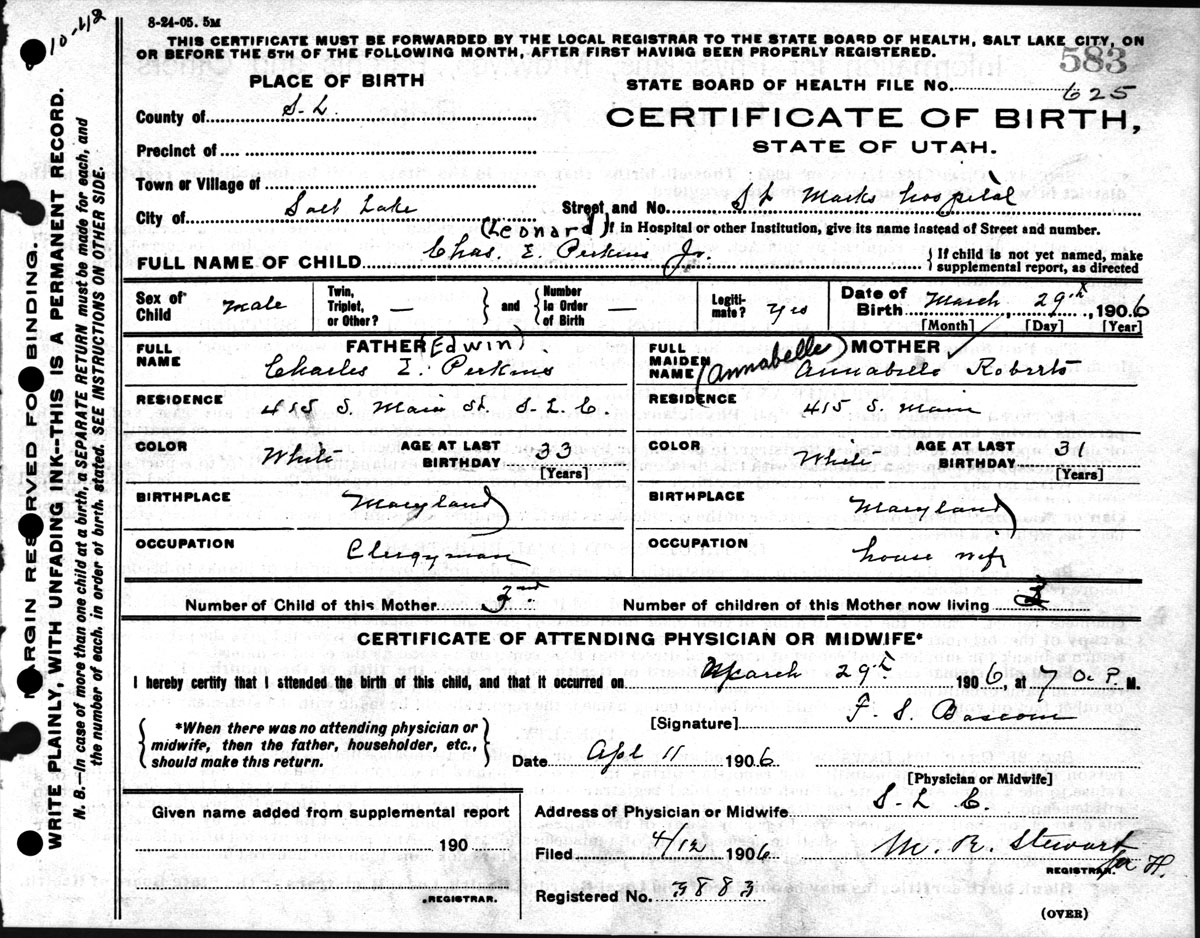 10-42
8-24-05. 5M
THIS CERTIFICATE MUST BE FORWARDED BY THE LOCAL REGISTRAR TO THE STATE BOARD OF HEALTH, SALT LAKE CITY, ON
OR BEFORE THE 5TH OF THE FOLLOWING MONTH, AFTER FIRST HAVING BEEN PROPERLY REGISTERED.
583
PLACE OF BIRTH
STATE BOARD OF HEALTH FILE NO. 625
County of S. L.
CERTIFICATE OF BIRTH,
Precinct of
STATE OF UTAH.
Town or Village of
City of Salt Lake Street and No. St Marks hospital
(Leonard) If in Hospital or other Institution, give its name instead of Street and number.
FULL NAME OF CHILD Chas. E. Perkins Jr. {If child is not yet named, make supplemental report, as directed
Sex of Child male Twin, Triplet, or Other? — } and { Number in Order of Birth — Legitimate? yes Date of Birth March 29th, 1906
[Month] [Day] [Year]
FATHER (Edwin) (Annabelle) MOTHER
FULL NAME Charles E. Perkins FULL MAIDEN NAME Annabelle Roberts
RESIDENCE 415 S. Main St. S. L. C RESIDENCE 415 S. Main
COLOR White AGE AT LAST BIRTHDAY 33 [Years] COLOR White AGE AT LAST BIRTHDAY 31 [Years]
BIRTHPLACE Maryland BIRTHPLACE Maryland
OCCUPATION Clergyman OCCUPATION house wife
Number of Child of this Mother 3rd Number of children of this Mother now living 3
CERTIFICATE OF ATTENDING PHYSICIAN OR MIDWIFE*
I hereby certify that I attended the birth of this child, and that it occurred on March 29th 1906, at 7 O. P. M.
*When there was no attending physician or
midwife, then the father, householder, etc.,
should make this return.
[Signature] F. S. Bascom
Date Apl 11 1906
[Physician or Midwife]
Given name added from supplemental report
Address of Physician or Midwife S. L. C.
190
Filed 4/12 1906 M. R. Stewart
REGISTRAR. for H.
Registered No. 3883
REGISTRAR.
(OVER)
MARGIN RESERVED FOR BINDING.
WRITE PLAINLY, WITH UNFADING INK—THIS IS A PERMANENT RECORD.
N. B.—In case of more than one child at a birth, a SEPARATE RETURN must be made for each, and
the number of each, in order of birth, stated. SEE INSTRUCTIONS ON OTHER SIDE.